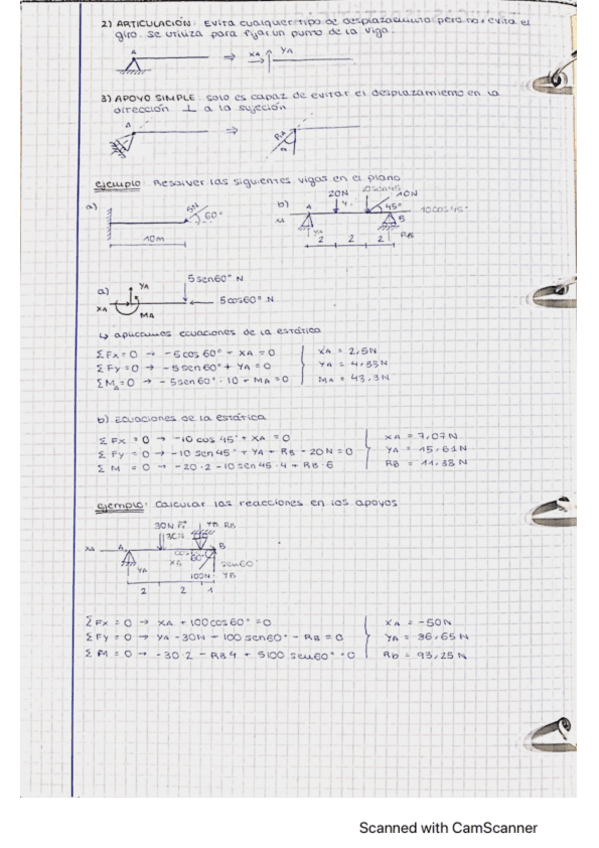 2) ARTICULACIÓN: Evita cualquier tipo de desplazamiento pero no evita el
giro. Se utiliza para fijar un punto de la viga.
A ⇒ XA YA
3) APOYO SIMPLE: solo es capaz de evitar el desplazamiento en la
dirección ⊥ a la sujeción
A ⇒ RA
ejemplo: Resolver las siguientes vigas en el plano
a) 5N 60° 10m
b) A 20N 10sen45 10N 45° 10cos45° B
XA YA RB
2 2 2
a) YA 5sen60° N
XA MA 5cos60° N
↳ aplicamos ecuaciones de la estática
ΣFx=0 → -5cos60° - XA = 0 XA = 2,5N
ΣFy=0 → -5sen60° + YA = 0 YA = 4,33N
ΣMA=0 → -5sen60° · 10 + MA = 0 MA = 43,3N
b) Ecuaciones de la estática
ΣFx = 0 → -10 cos 45° + XA = 0 XA = 7,07N
ΣFy = 0 → -10 sen 45° + YA + RB - 20N = 0 YA = 15,61N
ΣM = 0 → -20·2 - 10 sen 45·4 + RB·6 RB = 11,38N
ejemplo: Calcular las reacciones en los apoyos
30N RB
XA A 30N B
YA 60° sen60°
100N
2 2 1
ΣFx = 0 → XA + 100cos60° = 0 XA = -50N
ΣFy = 0 → YA - 30N - 100sen60° - RB = 0 YA = 36,65N
ΣM = 0 → -30·2 - RB4 + 5100 sen60° = 0 Rb = 93,25N
Scanned with CamScanner